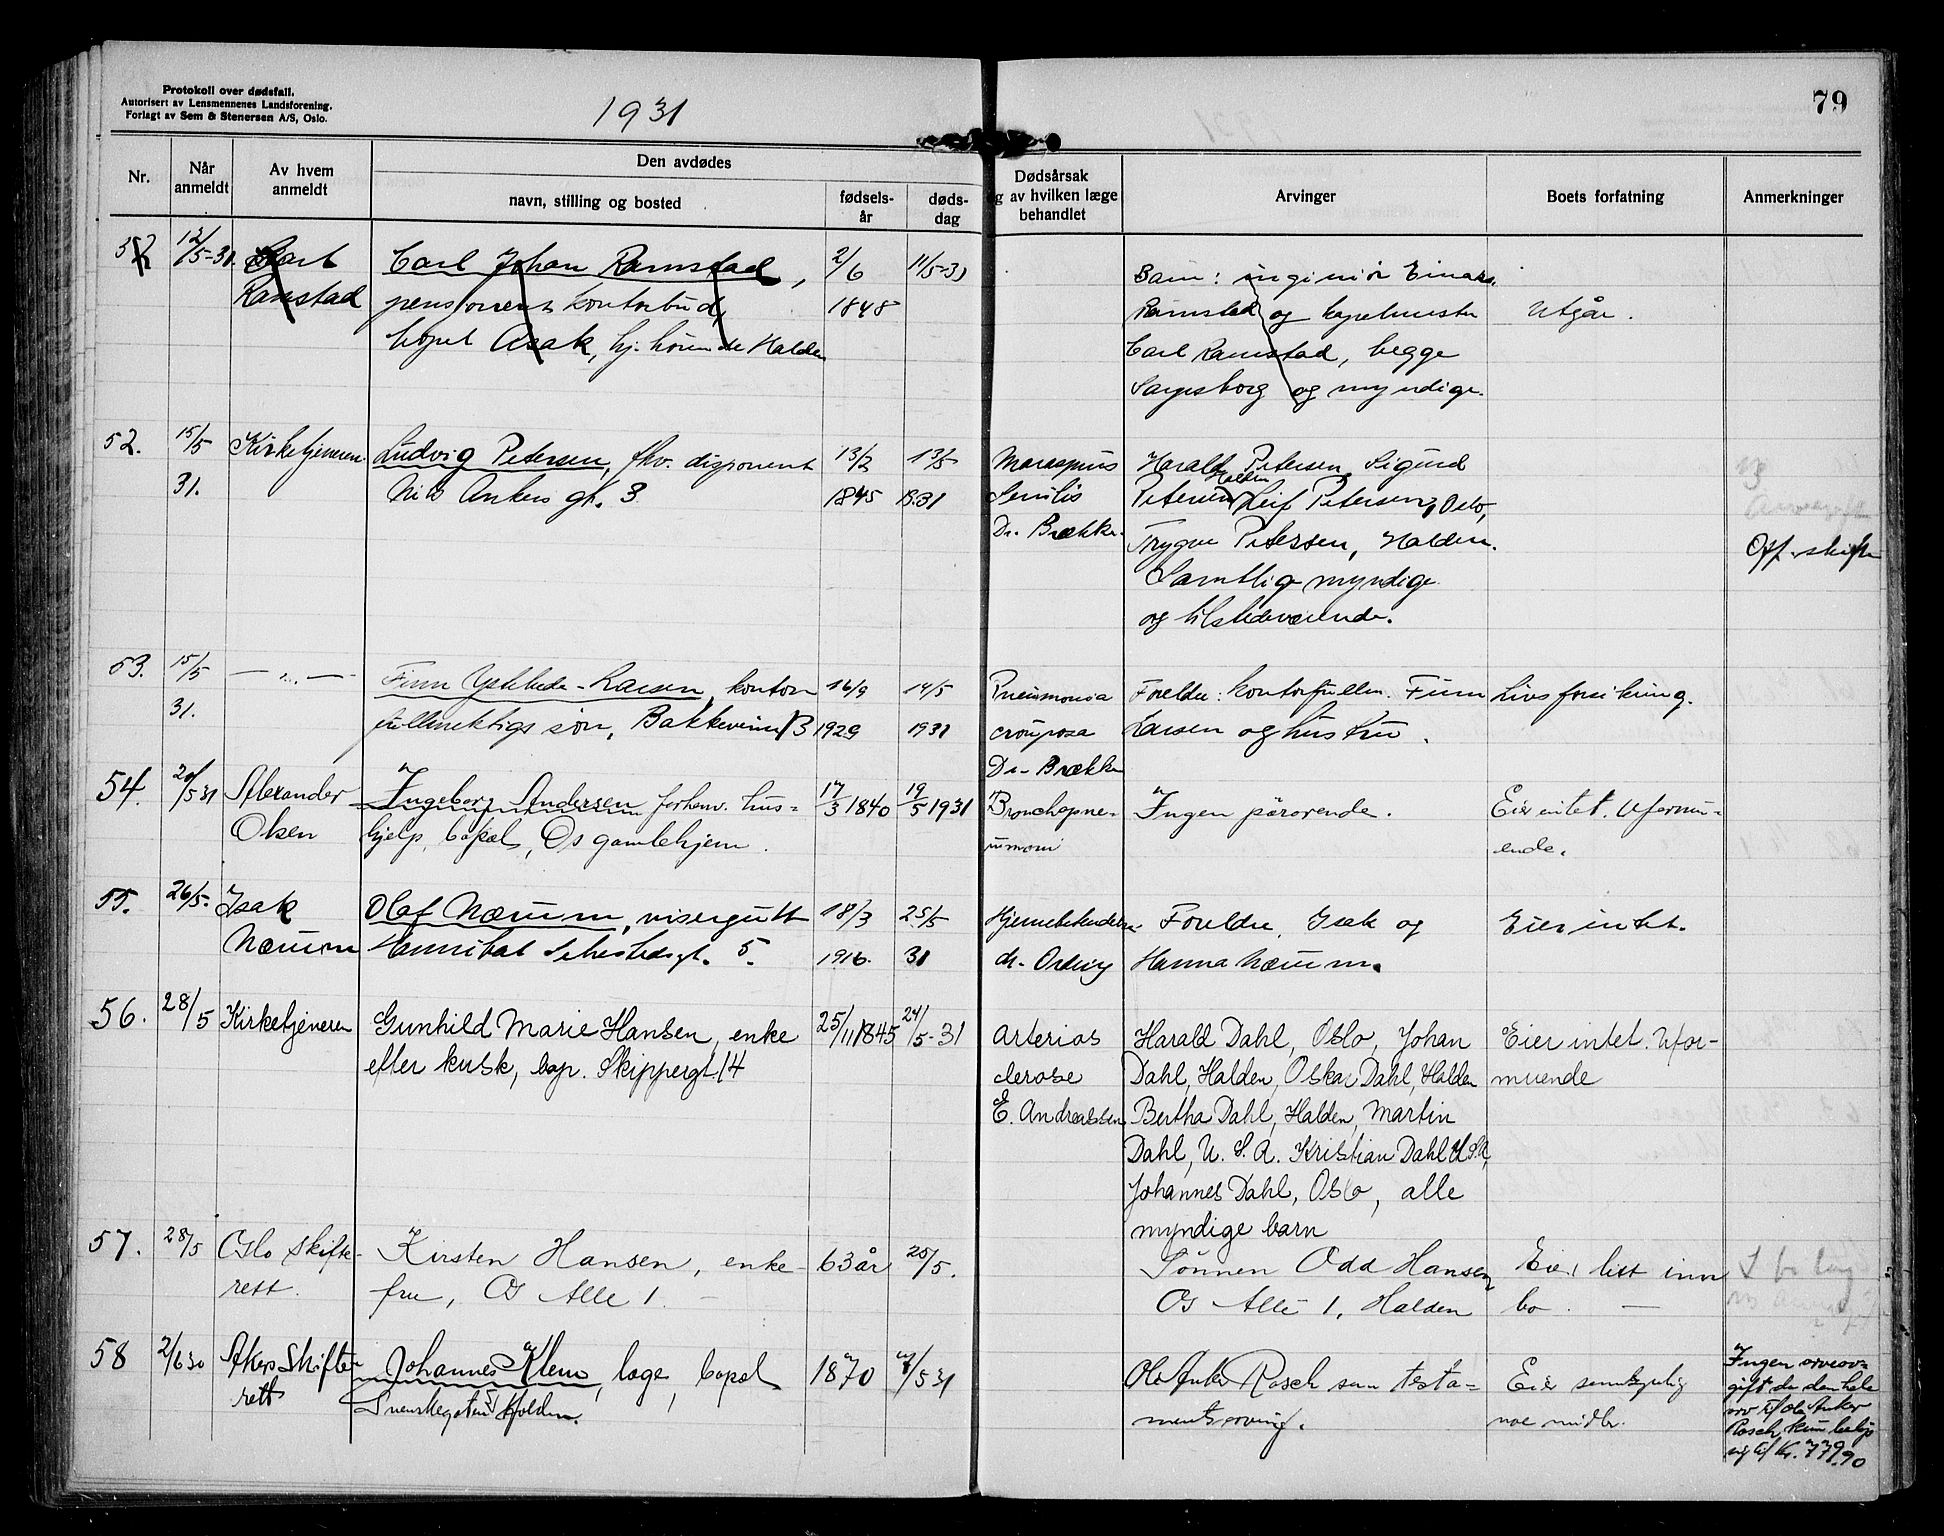 Protokoll over dødsfall.
Autorisert av Lensmennenes Landsforening.
Forlagt av Sem & Stenersen A/S, Oslo.
1931
79
Nr.
Når anmeldt
Av hvem anmeldt
Den avdødes
navn, stilling og bosted
fødsels-år
døds-dag
Dødsårsak
og av hvilken læge
behandlet
Arvinger
Boets forfatning
Anmerkninger
52 12/5-31. Carl Carl Johan Ramstad, 2/6 11/5-31 Barn: ingeniør Einar
Ramstad pensjonert kontorbud, 1848 Ramstad og kapelmester Utgår.
bopel Asak, hj. hørende Halden Carl Ramstad, begge
Sarpsborg og myndige.
52. 15/5 Kirketjeneren Ludvig Petersen, fhv. disponent 13/2 13/5 Marasmus Harald Petersen, Sigurd
31. Nils Ankers gt. 3. 1845 1931 Senilis Petersen, Halden Leif Petersen, Oslo,
Dr. Brække. Trygve Petersen, Halden. Off. skifte
Samtlige myndige
og tilstedeværende.
53. 15/5 — „ — Finn Ystehede-Larsen, kontor 16/9 14/5 Pneumonia Foreldre: kontorfullm. Finn Livsforsikring.
31. fullmektigs søn, Bakkeveien 13 1929 1931 crouposa Larsen og hustru.
Dr. Brække
54. 20/5 31 Alexander Ingeborg Andersen forhenv. hus- 17/3 1840 19/5 1931 Bronchopne- Ingen pårørende. Eier intet. Uformu-
Olsen hjelp, bopæl, Os gamlehjem. umoni ende.
55. 26/5. Isak Olaf Nærum, visergutt 18/3 25/5 Hjernebetendelse Foreldre, Isak og Eier intet.
Nærum Hannibal Sehestedsgt. 5. 1916. 31 dr. Ording Hanna Nærum.
56. 28/5 Kirketjeneren Gunhild Marie Hansen, enke 25/11 1845 24/5-31 Arterios Harald Dahl, Oslo, Johan Eier intet. Ufor-
efter kusk, bop. Skippergt. 14 clerose Dahl, Halden, Oskar Dahl, Halden muende
E. Andreassen Bertha Dahl, Halden, Martin
Dahl, U. S. A. Kristian Dahl U.S.A,
Johannes Dahl, Oslo, alle
myndige barn
57. 28/5 Oslo skifte- Kirsten Hansen, enke- 63 år 25/5. Sønnen Odd Hansen Eier litt inn
rett. fru, Os Alle 1. — Os Alle 1, Halden bo. —
58 2/6 30 Akers Skifte Johannes Klem, læge, bopel 1870 /5 31 Ole Anker Rosch som testa- Eier sansynlig Ingen arveav-
rett Svenskegaten Halden. mentsarving. noe midler. gift da den hele
arv til Ole Anker
Rosch kun beløp
sig til Kr. 779.90